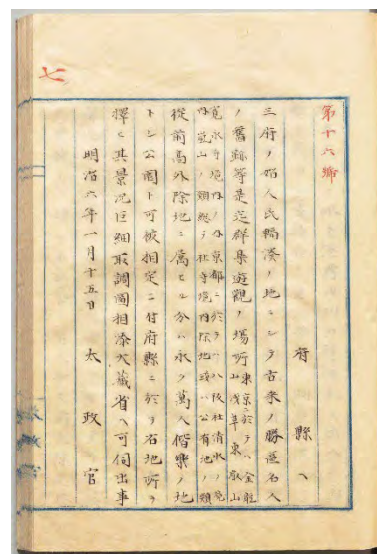 七
第十六號
府縣ヘ
三府ヲ始人民輻湊ノ地ニシテ古来ノ勝區名人
ノ舊跡等是迄群集遊觀ノ場所東京ニ於テハ金龍
山浅草寺東叡山
寛永寺境内ノ類京都ニ於テハ八坂社清水ノ境
内嵐山ノ類總テ社寺境内除地或ハ公有地ノ類
從前高外除地ニ屬セル分ハ永ク萬人偕樂ノ地
トシ公園ト可被相定ニ付府縣ニ於テ右地所ヲ
擇ヒ其景況巨細取調圖相添大藏省ヘ可伺出事
明治六年一月十五日 太政官